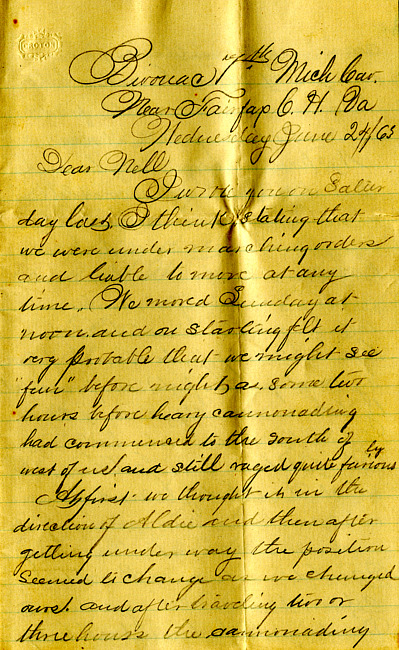 Bivouac 7th Mich Cav.
Near Fairfax C. H. Va
Wednesday June 24/63
Dear Nell
I wrote you on Satur
day last, I think, stating that
we were under marching orders
and liable to move at any
time. We moved Sunday at
noon. and on starting felt it
very probable that we might see
"fun" before night, as some two
hours before heavy cannonading
had commenced to the south of
west of us, and still raged quite furious
ly
At first we thought it in the
direction of Aldie and then after
getting under way the position
seemed to change as we changed
ours. and after traveling two or
three hours the cannonading